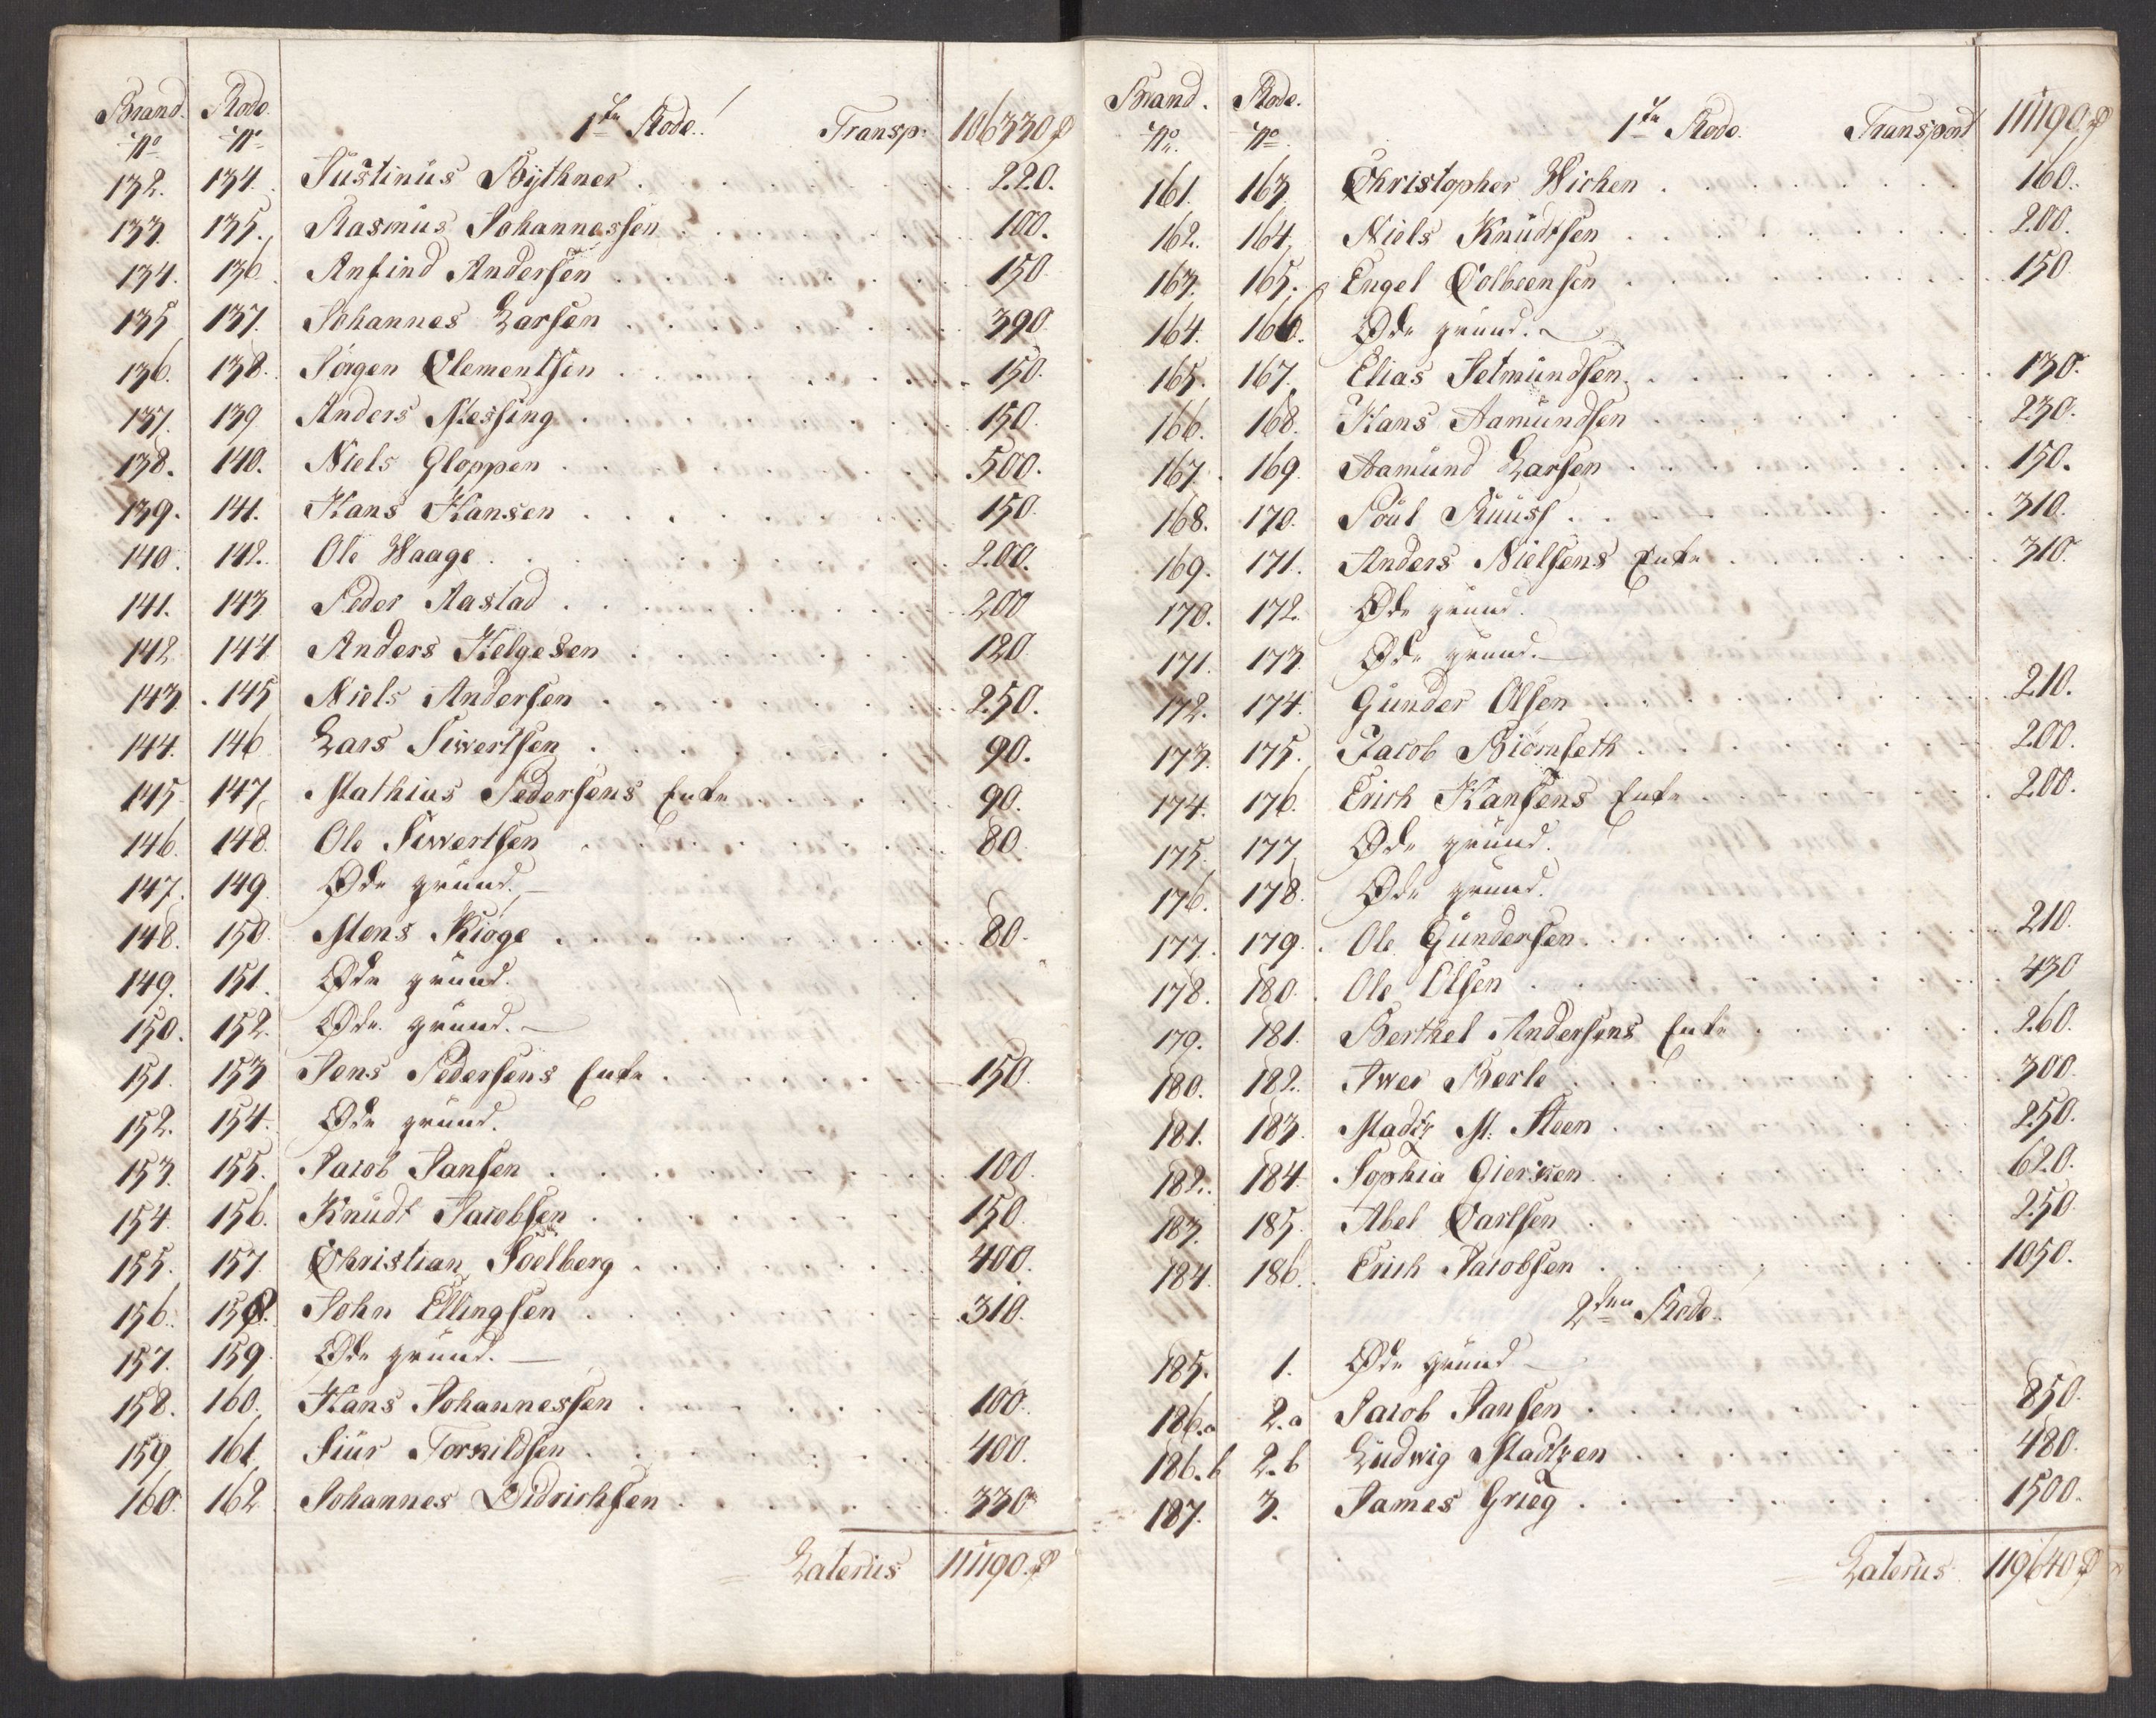 Brand. Rode.
No No 1ste Rode. Transp: 106330
132. 134. Justinus Bythner 220.
133. 135. Rasmus Johannessen 100.
134. 136. Anfind Andersen 150
135 137. Johannes Larsen 390
136. 138. Jørgen Clementsen 150.
137. 139 Anders Messing 150.
138. 140. Niels Gloppen 500.
139. 141. Hans Hansen 150
140. 142. Ole Waage 200.
141. 143 Peder Aastad 200
142 144 Anders Helgesen 120
143. 145 Niels Andersen 250.
144. 146 Lars Siwertsen 90.
145 147 Mathias Pedersens Enke 90.
146. 148. Ole Siwertsen 80
147. 149. Øde grund.
148. 150. Mons Kiøge 80.
149. 151. Øde grund.
150. 152. Øde grund.
151. 153 Jens Pedersens Enke 150.
152. 154. Øde grund.
153. 155. Jacob Jansen 100.
154. 156. Knudt Jacobsen 150.
155. 157. Christian Soelberg 400.
156. 158. John Ellingsen 310.
157. 159. Øde grund.
158. 160. Hans Johannessen 100.
159 161. Siur Torkildsen 400.
160. 162 Johannes Didrichsen 330
Laterus 111190.
Brand. Rode.
No. No. 1ste Rode. Transport 111190
161. 163 Christopher Wichen 160.
162. 164. Niels Knudtsen 200.
163. 165. Engel Colbeensen 150
164. 166. Øde grund.
165. 167. Elias Setmundsen 130.
166. 168. Hans Aamundsen 230.
167. 169. Aamund Larsen 150.
168. 170. Poul Ruuss 310.
169. 171. Anders Nielsens Enke 310.
170. 172. Øde grund.
171. 173. Øde grund.
172. 174. Gunder Olsen 210.
173. 175. Jacob Biørnseth 200.
174. 176. Erich Hansens Enke 200.
175. 177 Øde grund.
176. 178. Øde grund.
177. 179. Ole Gundersen 210.
178. 180. Ole Olsen 430
179. 181. Berthel Andersens Enke 260.
180. 182. Iwer Berle 300
181. 183. Madtz M. Steen 250.
182. 184. Sophia Gierken 620.
183. 185. Abel Carlsen 250.
184. 186. Erich Jacobsen 1050.
2den Rode.
185. 1. Øde grund
186.a 2.a Jacob Jansen 850.
186.b 2.b Ludwig Madtzen 480.
187. 3. James Grieg 1500.
Laterus 119640